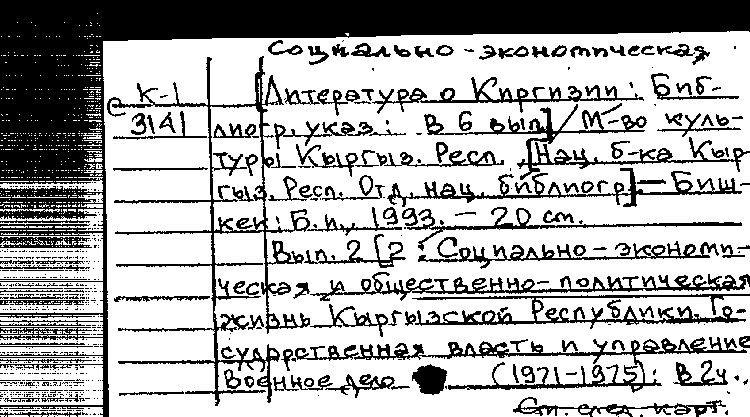 Социально-экономическая
К-1 [Литература о Киргизии: Биб-
3141 лиогр. указ: В 6 вып.] / М-во куль-
туры Кыргыз. Респ., [Нац. б-ка Кыр-
гыз. Респ. Отд. нац. библиогр.] — Биш-
кек: Б.и., 1993. — 20 см.
Вып. 2 [2: Социально-экономи-
ческая и общественно-политическая
жизнь Кыргызской Республики. Го-
сударственная власть и управление
Военное дело (1971-1975): В 2ч.,
См. след. карт.